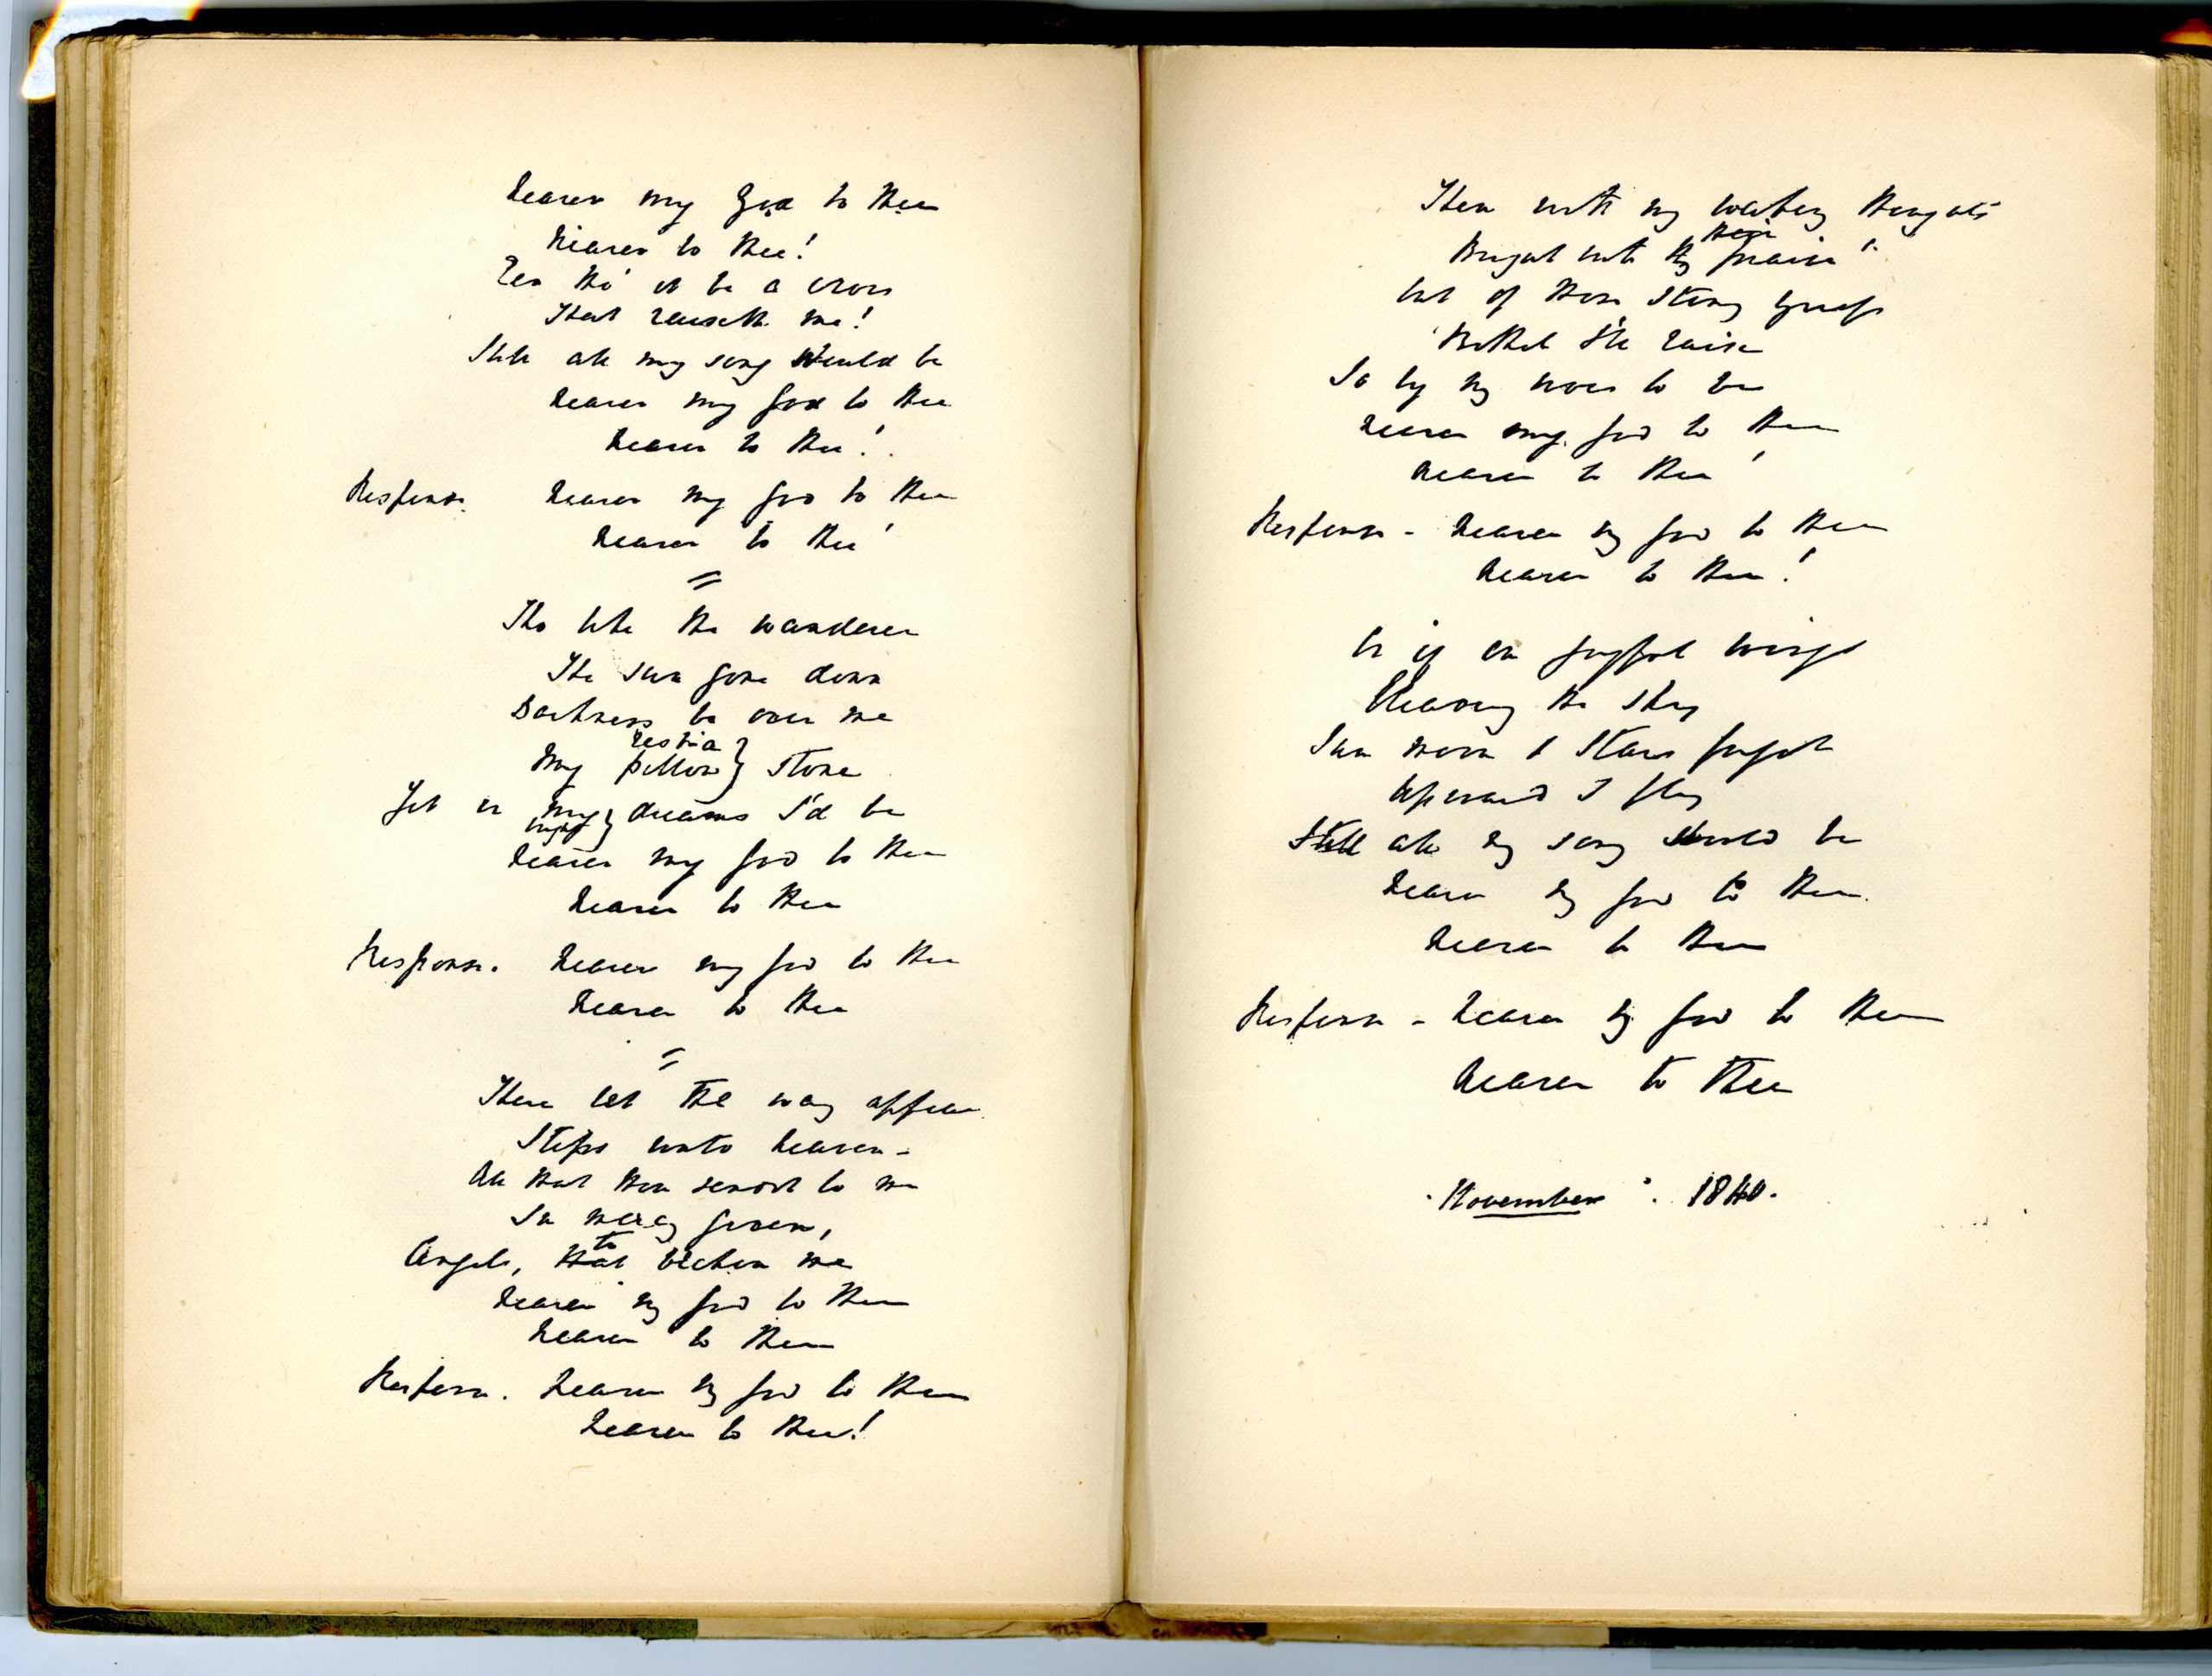 Nearer my God to Thee
Nearer to Thee!
E'en tho' it be a cross
That raiseth me!
Still all my song would be
Nearer my God to Thee
Nearer to Thee!
Response. Nearer my God to Thee
Nearer to Thee!
Tho like the wanderer
The sun gone down
Darkness be over me
rest is a
My pillow } stone
Yet in my } dreams I'd be
night
Nearer my God to Thee
Nearer to Thee
Response. Nearer my God to Thee
Nearer to Thee
There let the way appear
Steps unto heaven -
All that thou sendst to me
In mercy given,
to
Angels, that beckon me
Nearer my God to Thee
Nearer to Thee
Response. Nearer my God to Thee
Nearer to Thee!
Then with my waking thoughts
Bright with thy praise
Out of those stony griefs
Bethel I'll raise
So by my woes to be
Nearer my God to Thee
Nearer to Thee!
Response - Nearer my God to Thee
Nearer to Thee!
Or if on joyful wings
Cleaving the sky
Sun moon & stars forgot
Upward I fly
Still all my song would be
Nearer my God to Thee.
Nearer to Thee
Response - Nearer my God to Thee
Nearer to Thee
November. 1840.